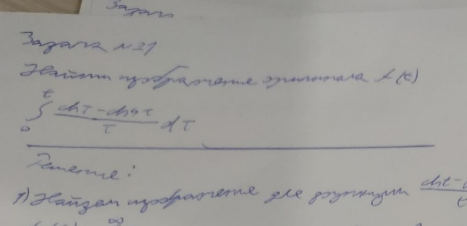 Задача
Задача №21
Найти изображение оригинала f(t)
t
∫ (chτ - ch4τ)/τ dτ
0
Решение:
1) Найдем изображение для функции cht -
∞